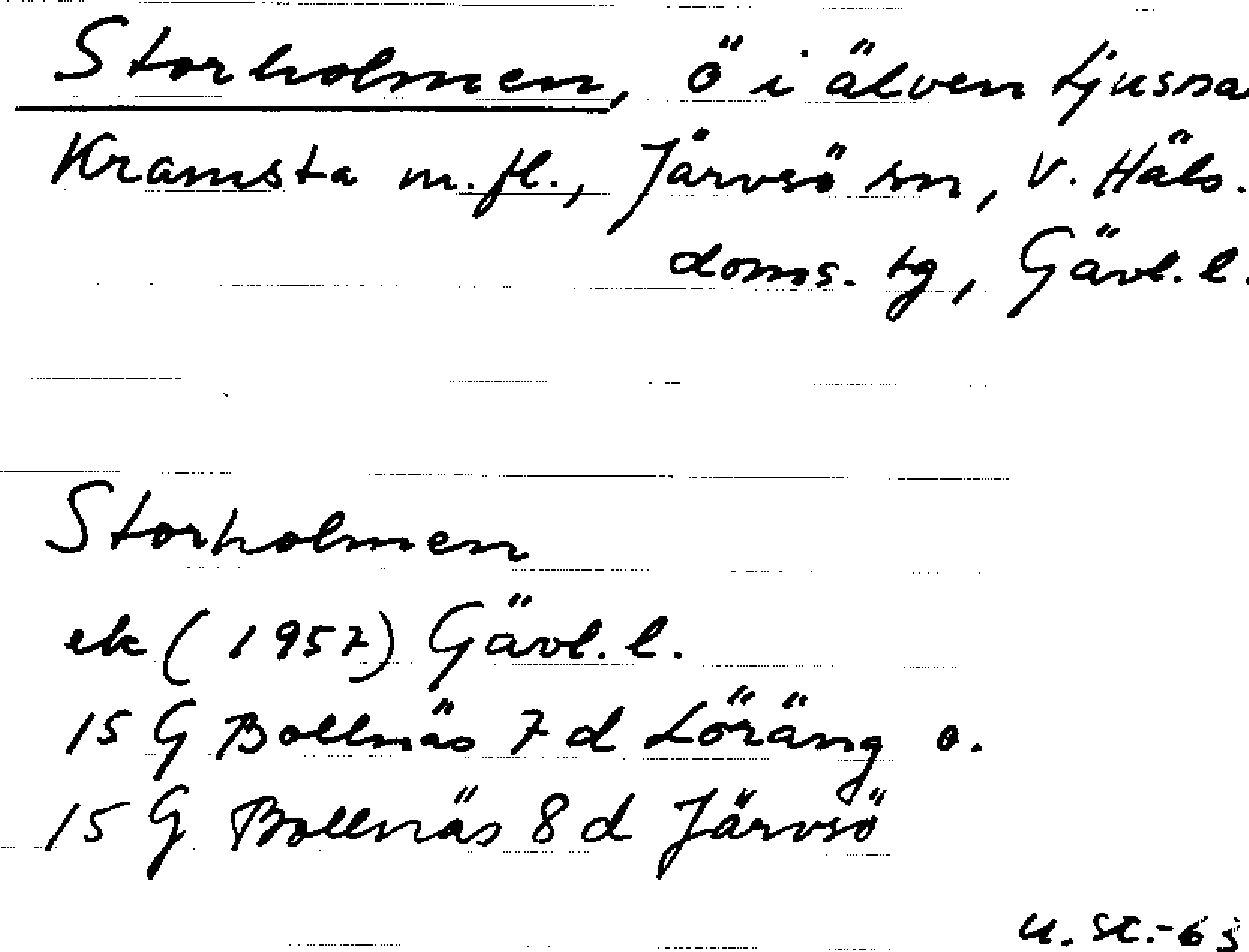 Storholmen, ö i älven Ljusna
Kramsta m.fl., Järvsö sn, V. Häls.
doms. tg, Gävl. l.
Storholmen
ek (1957) Gävl. l.
15 G Bollnäs 7 d Löräng o.
15 G Bollnäs 8 d Järvsö
U. St.-63